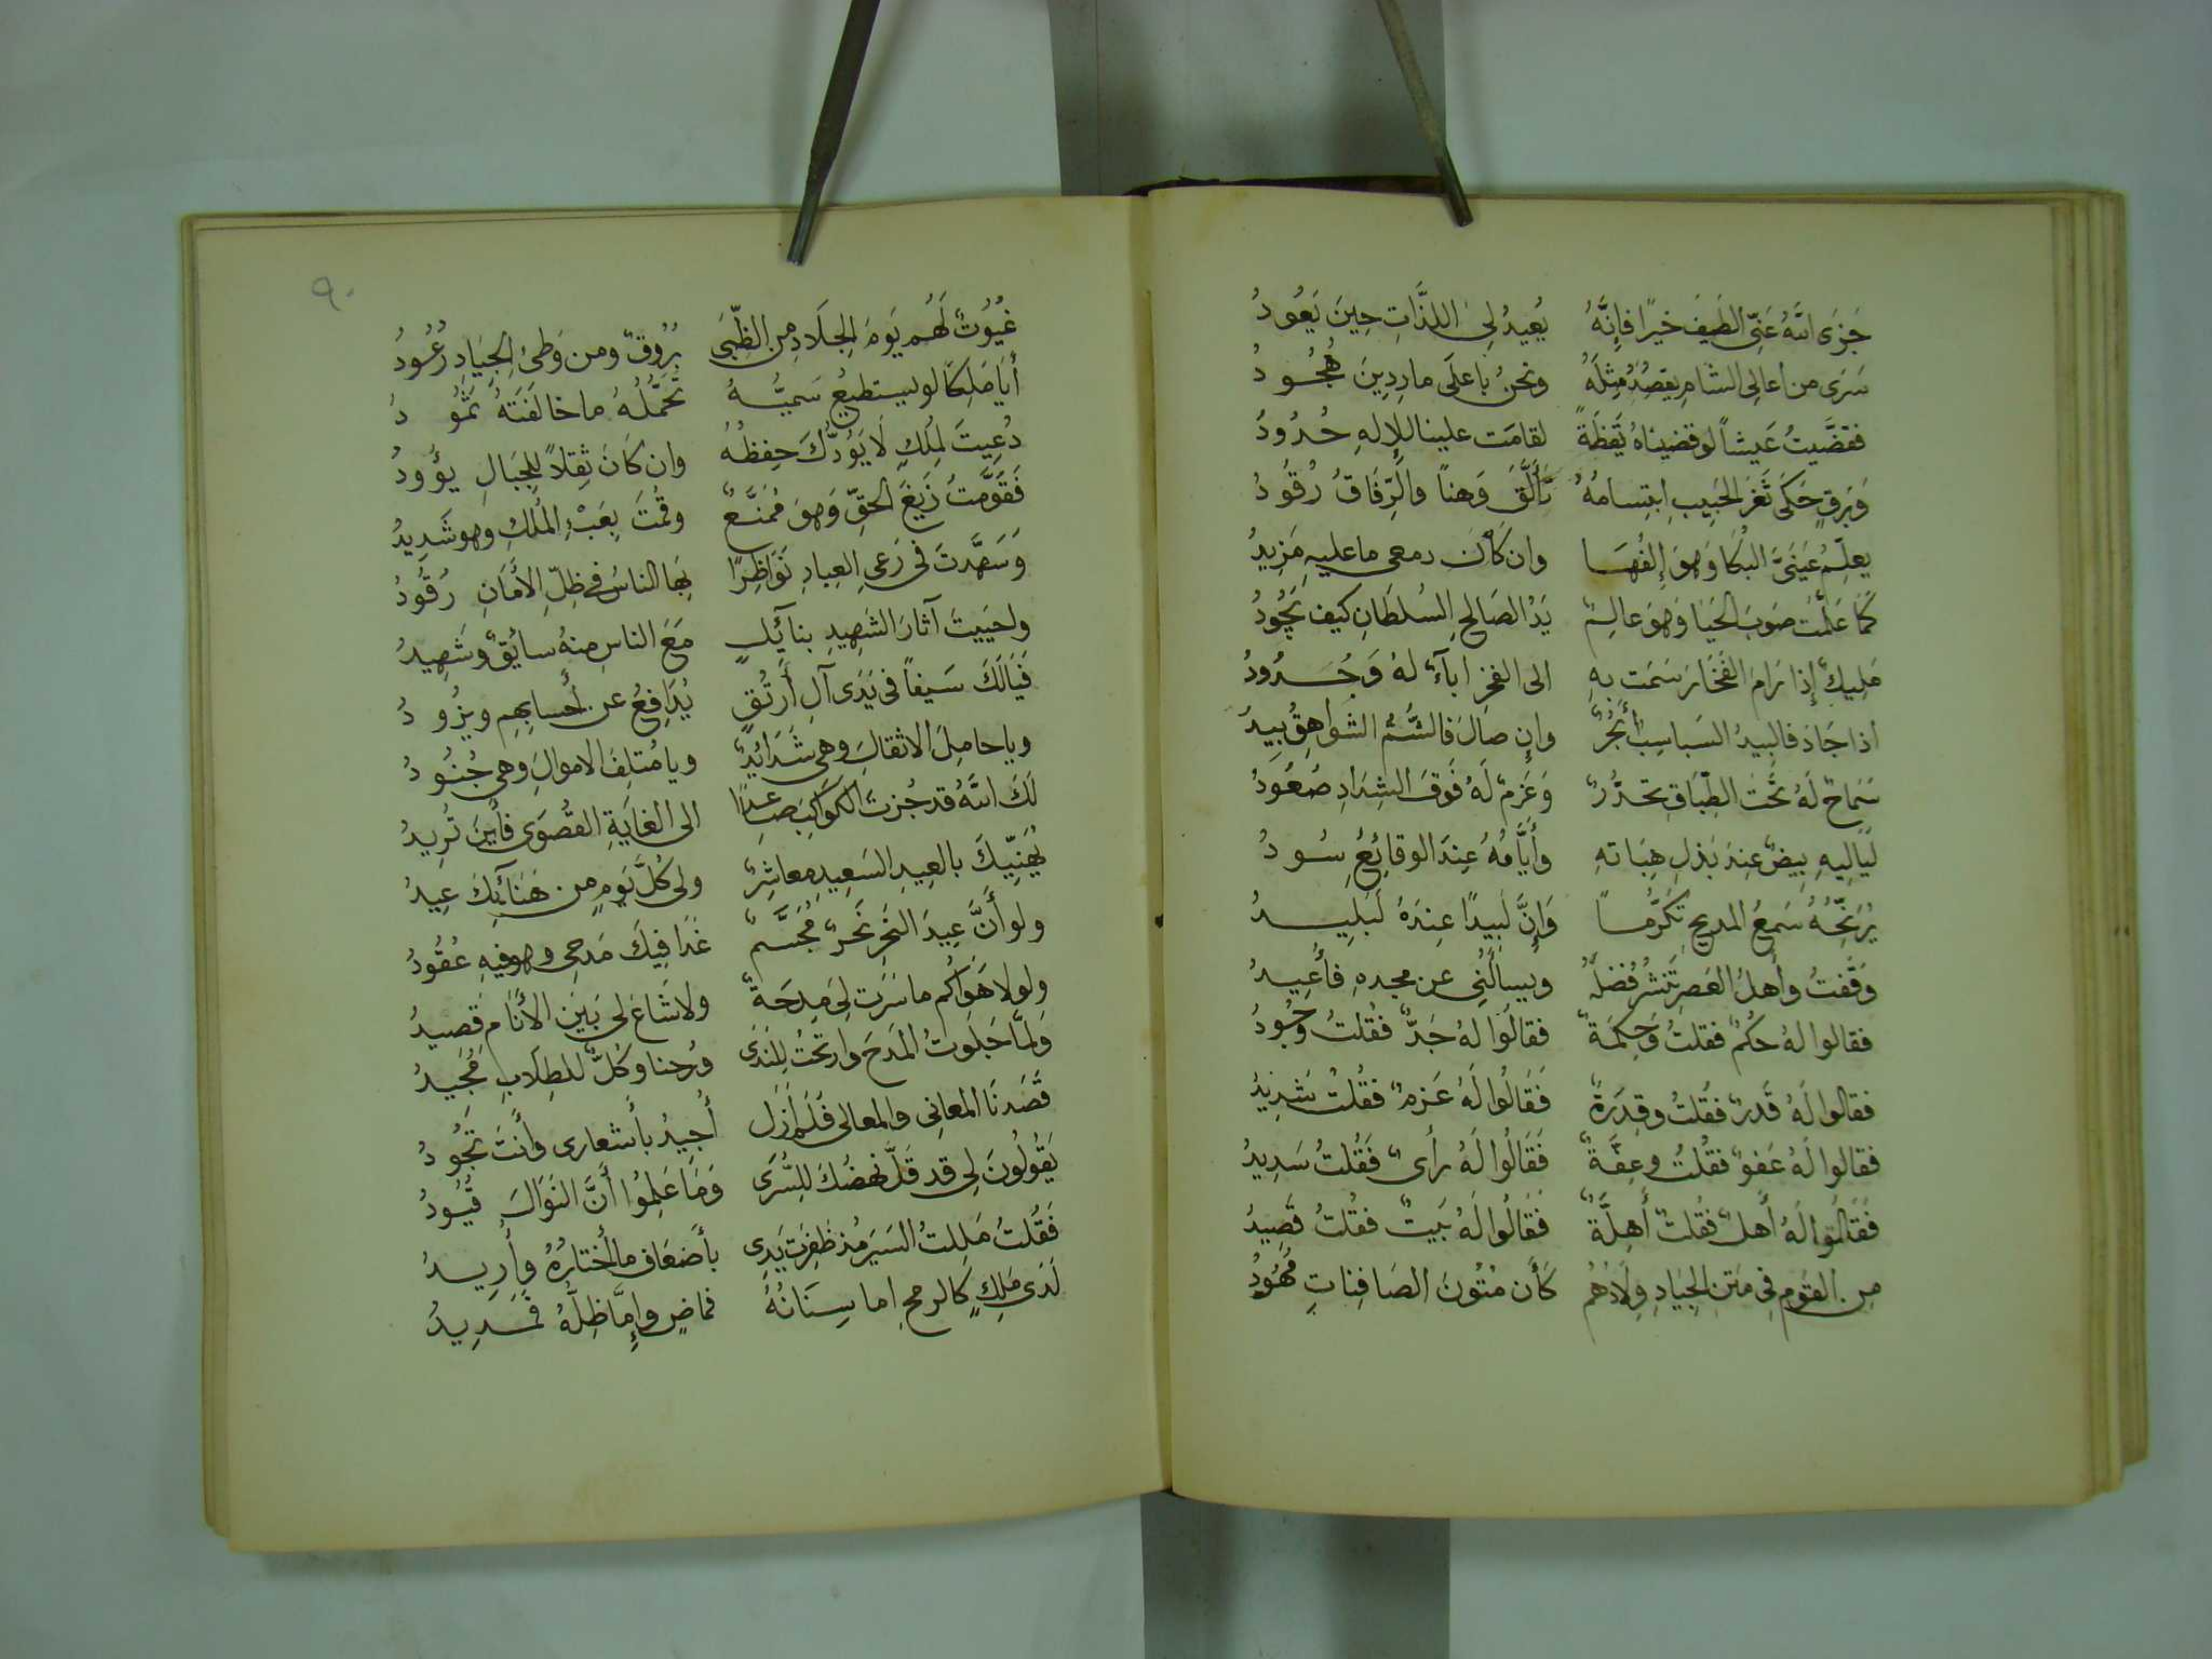 جَزَى اللهُ عَنِّى الطَيفَ خيرًا فإنَّهُ يُعيدُ لِىَ اللذَّاتِ حِينَ يَعُودُ
سَرَى من أعالِى الشامِ يقصُدُ مِثلَهُ ونحنُ باعلَى مارِدِينَ هُجُودُ
فقضَّيتُ عَيشاً لو قضيناهُ يَقظَةً لقامَت علينا للإِلهِ حُدُودُ
وَبَرقٍ حَكَى ثَغرَ الحَبِيبِ ابتِسامُهُ تَأَلَّقَ وَهناً والرِّفَاقُ رُقُودُ
يعلِّمُ عَينَىَّ البُكَا وَهوَ إِلفُهَا وان كَانَ دمعى ما عليهِ مَزِيدُ
كَمَا عَلَّمَت صَوبَ الحَيَا وَهوَ عالِمٌ يَدُ الصَالحِ السُلطَانِ كيف تَجُودُ
مَلِيكٌ إِذا رَامَ الفَخَارَ سَمَت بهِ الى الفخرِ اباءٌ لهُ وَجُدُودُ
اذا جَادَ فالبيدُ السَباسِبُ أَبحُرٌ وإِن صالَ فالشُّمُّ الشَواهِقُ بِيدُ
سَمَاحٌ لَهُ تَحتَ الطِّبَاقِ تحَدُّرٌ وَعَزمٌ لَهُ فَوقَ الشِدَادِ صُعُودُ
لَيَالِيهِ بِيضٌ عِندَ بَذلِ هِبَاتهِ وأَيَّامُهُ عِندَ الوقائِعِ سُودُ
يُرَنِّحُهُ سَمعُ المديحِ تكَرُّماً وَإِنَّ لَبيدًا عِندَهُ لَبَلِيدُ
وَقَفتُ وأَهلُ العَصرِ تَنشُرُ فَضلَهُ ويسأَلُنِى عن مجدهِ فأُعِيدُ
فقالوا لهُ حُكمٌ فقلتُ وَحِكمَةٌ فقالُوا لهُ جَدٌّ فقُلتُ وَجُودُ
فقالوا لَهُ قَدرٌ فقُلتُ وقدرَةٌ فَقَالُوا لَهُ عَزمٌ فقُلتُ شَدِيدُ
فقالوا لَهُ عَفوٌ فقُلتُ وعِفَّةٌ فَقَالُوا لَهُ رأىٌ فَقُلتُ سَدِيدُ
فَقَالُوا لَهُ أَهلٌ فقُلتُ أَهِلَّةٌ فَقَالُوا لَهُ بَيتٌ فقُلتُ قَصِيدُ
مِن القَومِ فِى مَتنِ الجِيَادِ وِلَادُهُم كَأَن مُتُونَ الصَافِنَاتِ مُهُودُ
٩٠
غيُوثٌ لَهُم يَومَ الجِلَادِ مِن الظُّبَى بُرُوقٌ ومن وَطىءِ الجِيَادِ رُعُودُ
أَيَا مَلِكاً لو يستطيعُ سَميُّهُ تَحَمُّلَهُ ما خالَفَتهُ ثَمُودُ
دُعِيتَ لِمُلكٍ لَا يَؤُدُّكَ حِفظُهُ وان كَانَ ثِقلاً لِلجِبَالِ يؤُودُ
فَقَوَّمتَ زَيغَ الحَقِّ وَهوَ مُمَنَّعٌ وقُمتَ بِعَبْءِ المُلكِ وهو شَدِيدُ
وَسَهَّدتَ فى رَعىِ العِبادِ نَوَاظِرًا بِهَا الناسُ فى ظِلِّ الأَمَانِ رُقُودُ
واحيَيتَ آثارَ الشَهِيدِ بنائلٍ مَعَ الناسِ مِنهُ سائِقٌ وشَهِيدُ
فَيَا لَكَ سَيفاً فى يَدَى آلِ أُرتُقٍ يُدَافِعُ عن أَحسابِهِم ويذُودُ
ويا حامِلَ الاثقالِ وهى شَدَائِدٌ ويا مُتلِفَ الاموالِ وهى جُنُودُ
لَكَ اللهُ قد جُزتَ الكَوَاكِبَ صَاعِدًا الى الغايَةِ القُصوَى فأَينَ تُرِيدُ
يُهَنِّيكَ بالعِيدِ السَعِيدِ معاشِرٌ ولى كُلَّ يَومٍ من هَنَائِكَ عِيدُ
ولو أَنَّ عِيدَ النَحرِ نَحرٌ مُجَسَّمٌ غَدَا فِيكَ مَدحِى وهو فيهِ عُقُودُ
ولولا هَوَاكُم ما سَرَت لِىَ مِدحَةٌ ولا شَاعَ لى بَين الأَنَامِ قَصيدُ
ولمَّا جَلَوتُ المَدحَ وارتَحتُ لِلنَدَى ورُحنا وكُلٌّ للطِلَابِ مُجيدُ
قَصَدنَا المعانِى والمعالِى فَلَم أَزَل أُجِيدُ بأَشعارى وأَنتَ تَجُودُ
يَقُولُونَ لِى قد قَلَّ نهضُكَ لِلسُرَى وَمَا عَلِمُوا أَنَّ النَوَالَ قُيُودُ
فَقُلتُ مَلِلتُ السَيرَ مُذ ظَفِرَت يَدِى بأَضعَافِ ما أَختَارُهُ وأُرِيدُ
لَدَى مَلِكٍ كالرمحِ اما سِنَانُهُ فماضٍ وإِمَّا ظِلُّهُ فمَدِيدُ